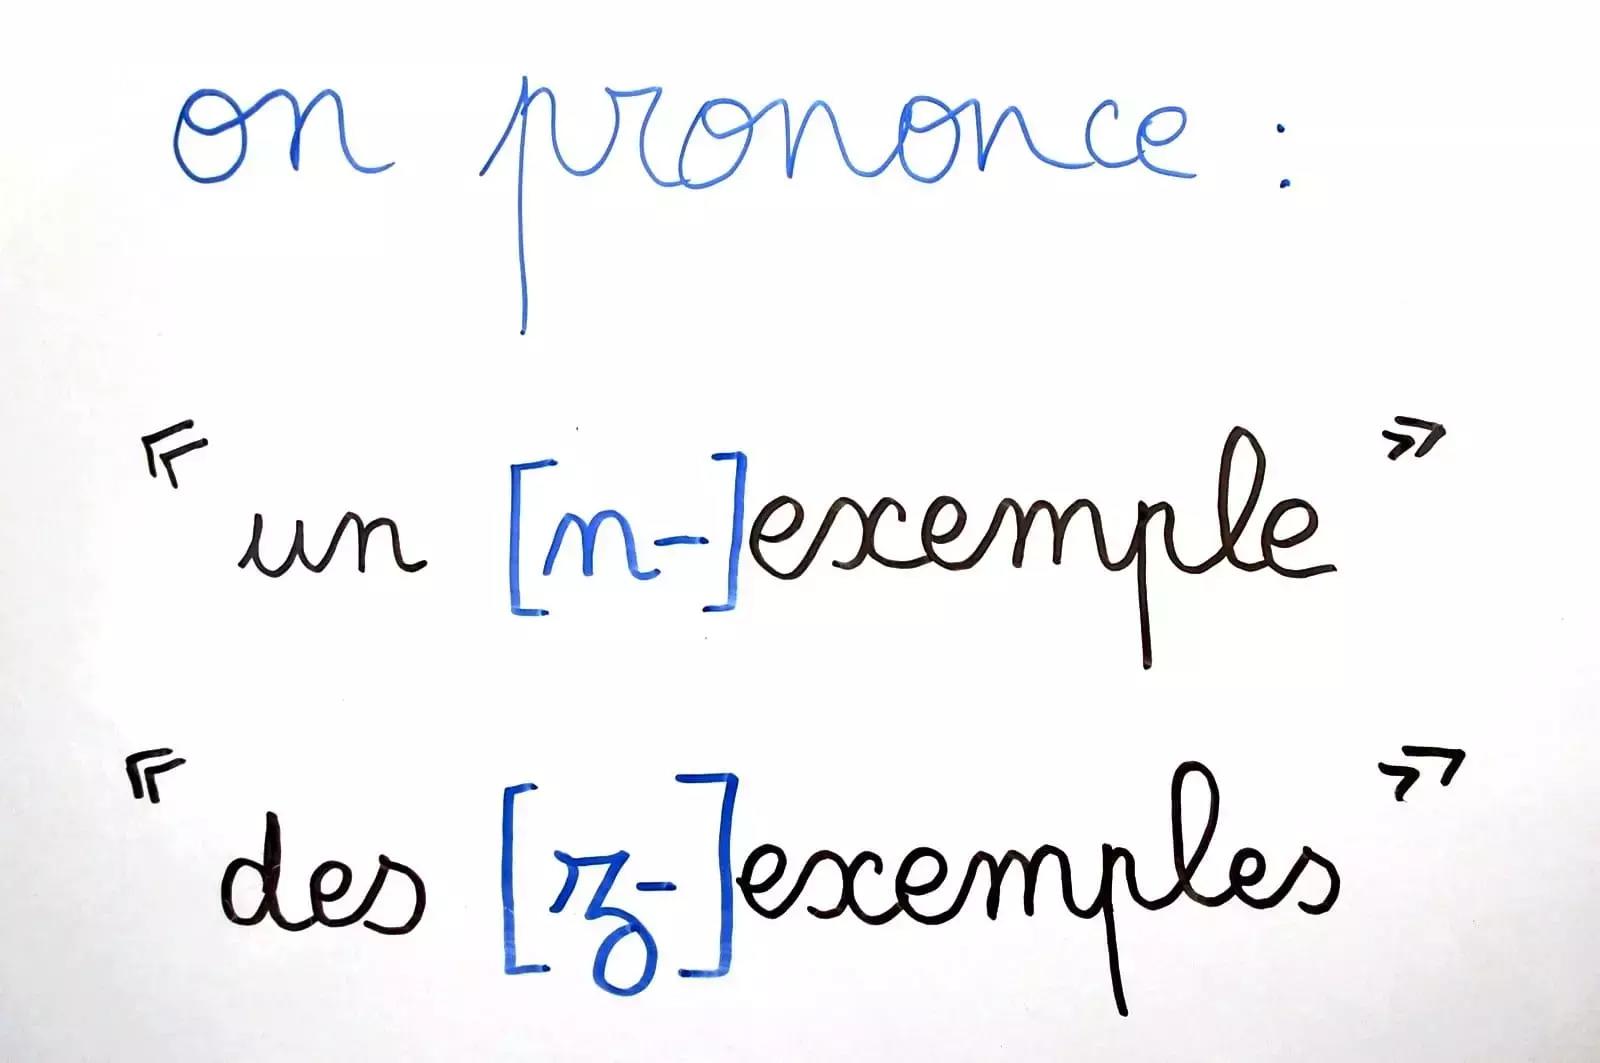 on prononce :
« un [n-]exemple »
« des [z-]exemples »